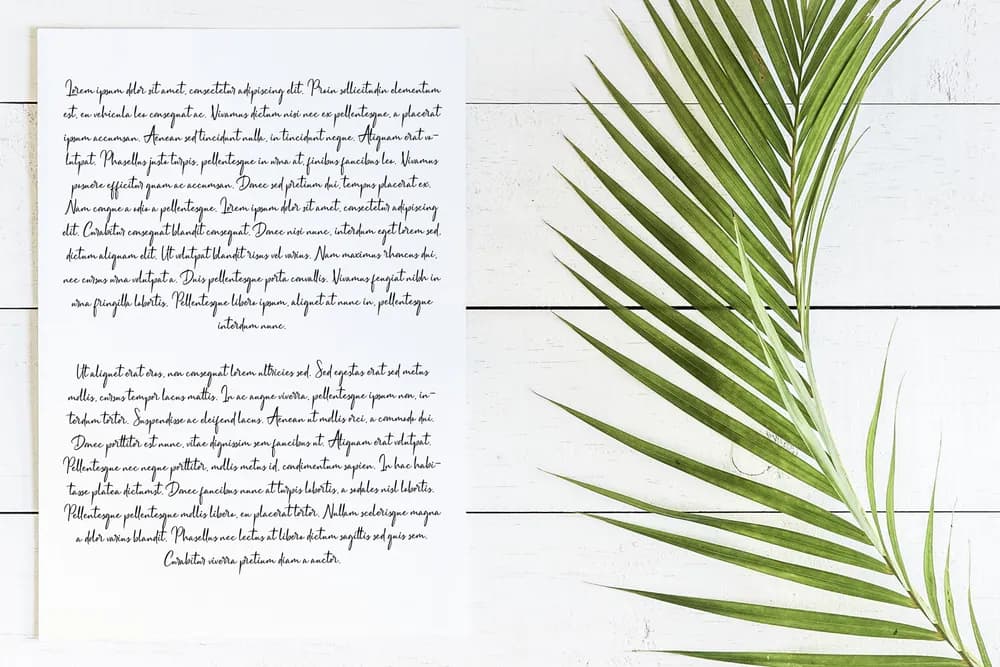 Lorem ipsum dolor sit amet, consectetur adipiscing elit. Proin sollicitudin elementum
est, eu vehicula leo consequat ac. Vivamus dictum nisi nec ex pellentesque, a placerat
ipsum accumsan. Aenean sed tincidunt nulla, in tincidunt neque. Aliquam erat vo-
lutpat. Phasellus justo turpis, pellentesque in urna at, finibus faucibus leo. Vivamus
posuere efficitur quam ac accumsan. Donec sed pretium dui, tempus placerat ex.
Nam congue a odio a pellentesque. Lorem ipsum dolor sit amet, consectetur adipiscing
elit. Curabitur consequat blandit consequat. Donec nisi nunc, interdum eget lorem sed,
dictum aliquam elit. Ut volutpat blandit risus vel varius. Nam maximus rhoncus dui,
nec cursus urna volutpat a. Duis pellentesque porta convallis. Vivamus feugiat nibh in
urna fringilla lobortis. Pellentesque libero ipsum, aliquet at nunc in, pellentesque
interdum nunc.
Ut aliquet erat eros, non consequat lorem ultricies sed. Sed egestas erat sed metus
mollis, cursus tempor lacus mattis. In ac augue viverra, pellentesque ipsum non, in-
terdum tortor. Suspendisse ac eleifend lacus. Aenean ut mollis orci, a commodo dui.
Donec porttitor est nunc, vitae dignissim sem faucibus at. Aliquam erat volutpat.
Pellentesque nec neque porttitor, mollis metus id, condimentum sapien. In hac habi-
tasse platea dictumst. Donec faucibus nunc at turpis lobortis, a sodales nisl lobortis.
Pellentesque pellentesque mollis libero, eu placerat tortor. Nullam scelerisque magna
a dolor varius blandit. Phasellus nec lectus at libero dictum sagittis sed quis sem.
Curabitur viverra pretium diam a auctor.